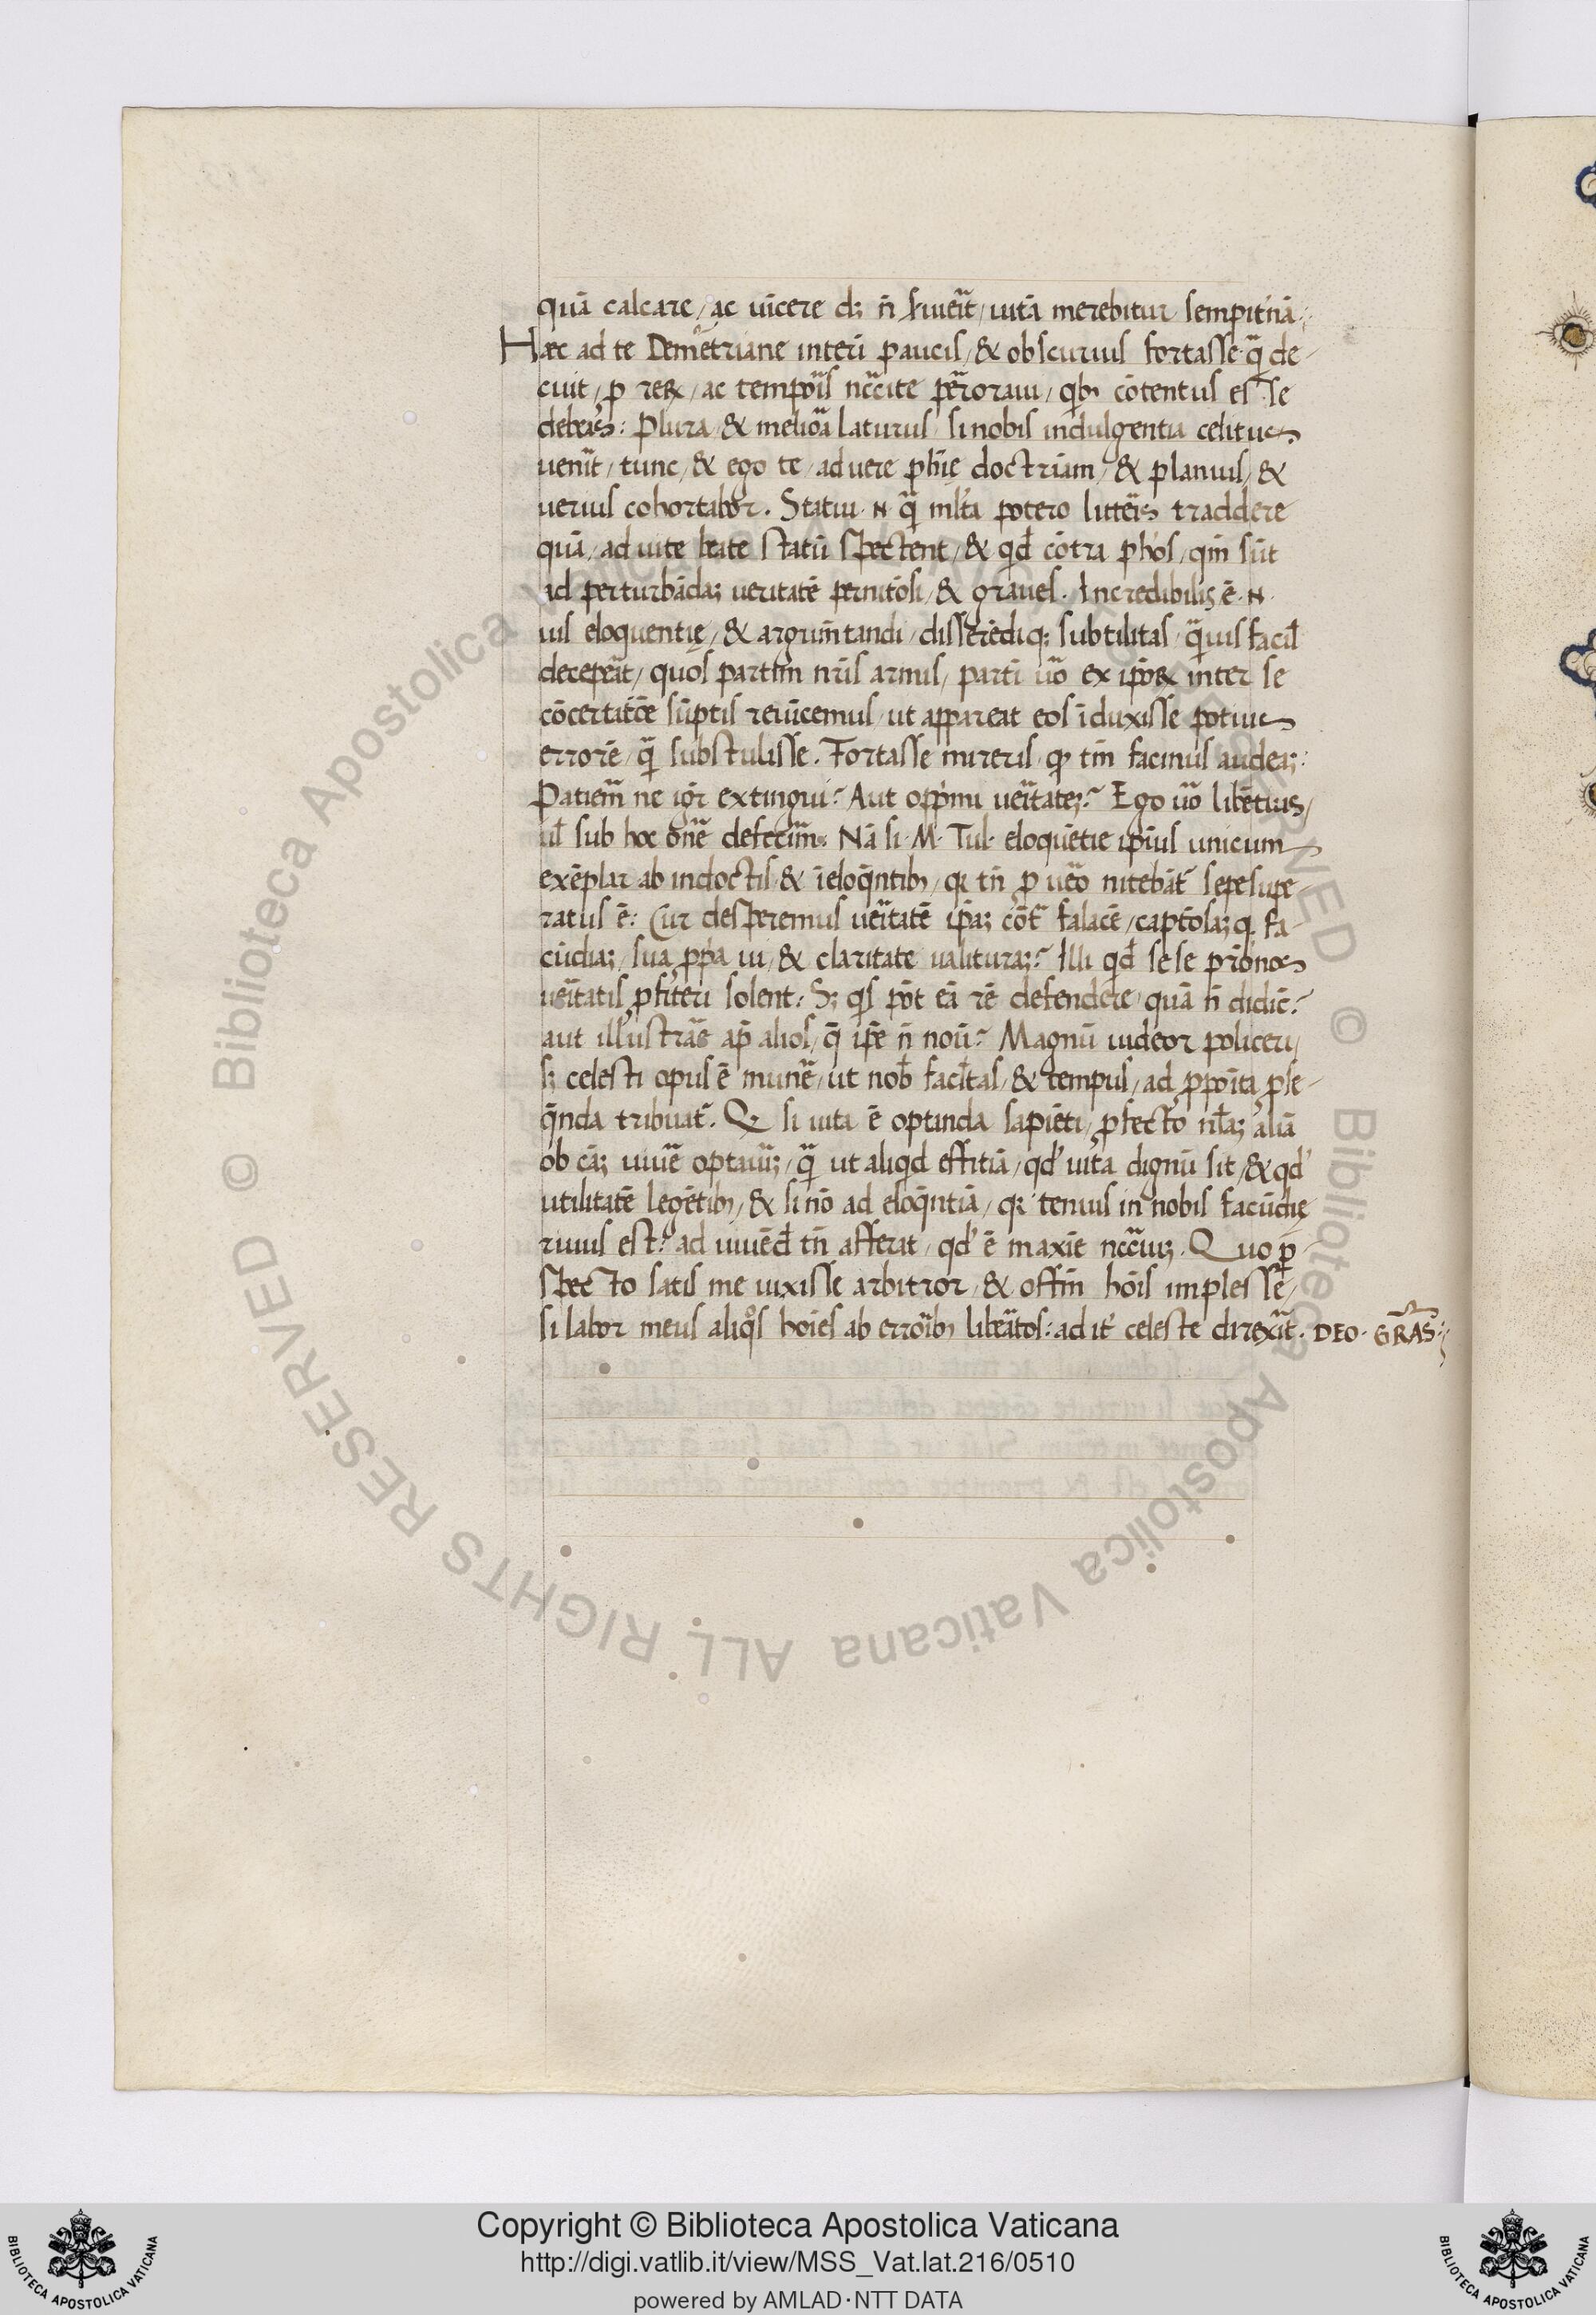 quā calcare / ac uīcere dꝫ n̄ / uitā merebitur sempit'nā:
Hæc ad te Demetriane interī paucis / & obscurius fortasse q̄ de-
cuit / ꝓ reꝝ / ac tempoı̄s nc̄cite ꝑoraui / qbꝫ cōtentus esse
debeis: Plura / & meliōa laturus si nobis indulgentia celitus
uenı̄t / tunc / & ego te / ad uere ph̄ie doctrīam / & planius / & 
uerius cohortabor. Statui .N. q̄ ml'ta potero litteı̄s traddere
quā / ad uite beate statū spectent / & qd̄ cōtra ph̄os / qm̄ sūt
ad perturbādaꝫ ueritatē pernitōsi / & graues. Incredibilis ē .N.
uis eloquentię / & argum̄tandi / disserēdiqꝫ subtilitas q̄uis facil̄
decepāt / quos partim nr̄is armis / partī uō ex ipōꝝ inter se
cōcertatōe sūptis reuīcemus ut appareat eos īduxisse potius
errorē q̄ substulisse. Fortasse mireris qꝫ tm̄ facinus audeaꝫ:
Patiem̄ ne igr̄ extingui? Aut opp'mi ueı̄tateꝫ? Ego uō libētius /
ul̄ sub hoc onē defecim̄. Nā si .M. Tul. eloquētie ipius unicum
exēplar ab indoctis & īeloq̄ntibꝫ / qꝛ tn̄ ꝓ uēo nitebāt̄ sepe supe-
ratus ē: Cur desperemus ueı̄tatē ip̄aꝫ cōt̄ falacē / captōsaꝫqꝫ fa-
cūdiaꝫ / sua ꝓp'a ui / & claritate ualituraꝫ? Illi qd̄ sese pr̄onos
ueı̄tatis ꝓfiteri solent: Sꝫ qs pōt eā rē defendere quā n̄ didic̄?
aut illustrāe ap̄ alios / q̄ ip̄e n̄ noū? Magnū uideor policeri /
sꝫ celesti opus ē munē / ut nob̄ facl̄tas / & tempus / ad ꝓpoı̄ta ꝓse-
q̄nda tribuat̄. Qꝫ si uita ē optanda sapiēti / ꝓfecto nl̄aꝫ aliā
ob cāꝫ uiuē optauı̄ꝫ / q̄ ut aliqd effitiā / qd' uita dignū sit / & qd'
utilitatē legētibꝫ / & si nō ad eloq̄ntiā / qꝛ tenuis in nobis facūdię
riuus est: ad uiuēd̄ tn̄ afferat / qd' ē maxīe nc̄c̄iuꝫ. Quo ꝑ-
specto satis me uixisse arbitror / & offm̄ hoı̄s implesse /
si labor meus aliq̊s hoı̄es ab erroı̄bꝫ libeātos: ad it' celeste direxı̄t. DEO. GR̄AS:
Copyright © Biblioteca Apostolica Vaticana
http://digi.vatlib.it/view/MSS_Vat.lat.216/0510
powered by AMLAD·NTT DATA
BIBLIOTECA APOSTOLICA VATICANA
BIBLIOTECA APOSTOLICA VATICANA
© Biblioteca Apostolica Vaticana ALL RIGHTS RESERVED © Biblioteca Apostolica Vaticana ALL RIGHTS RESERVED